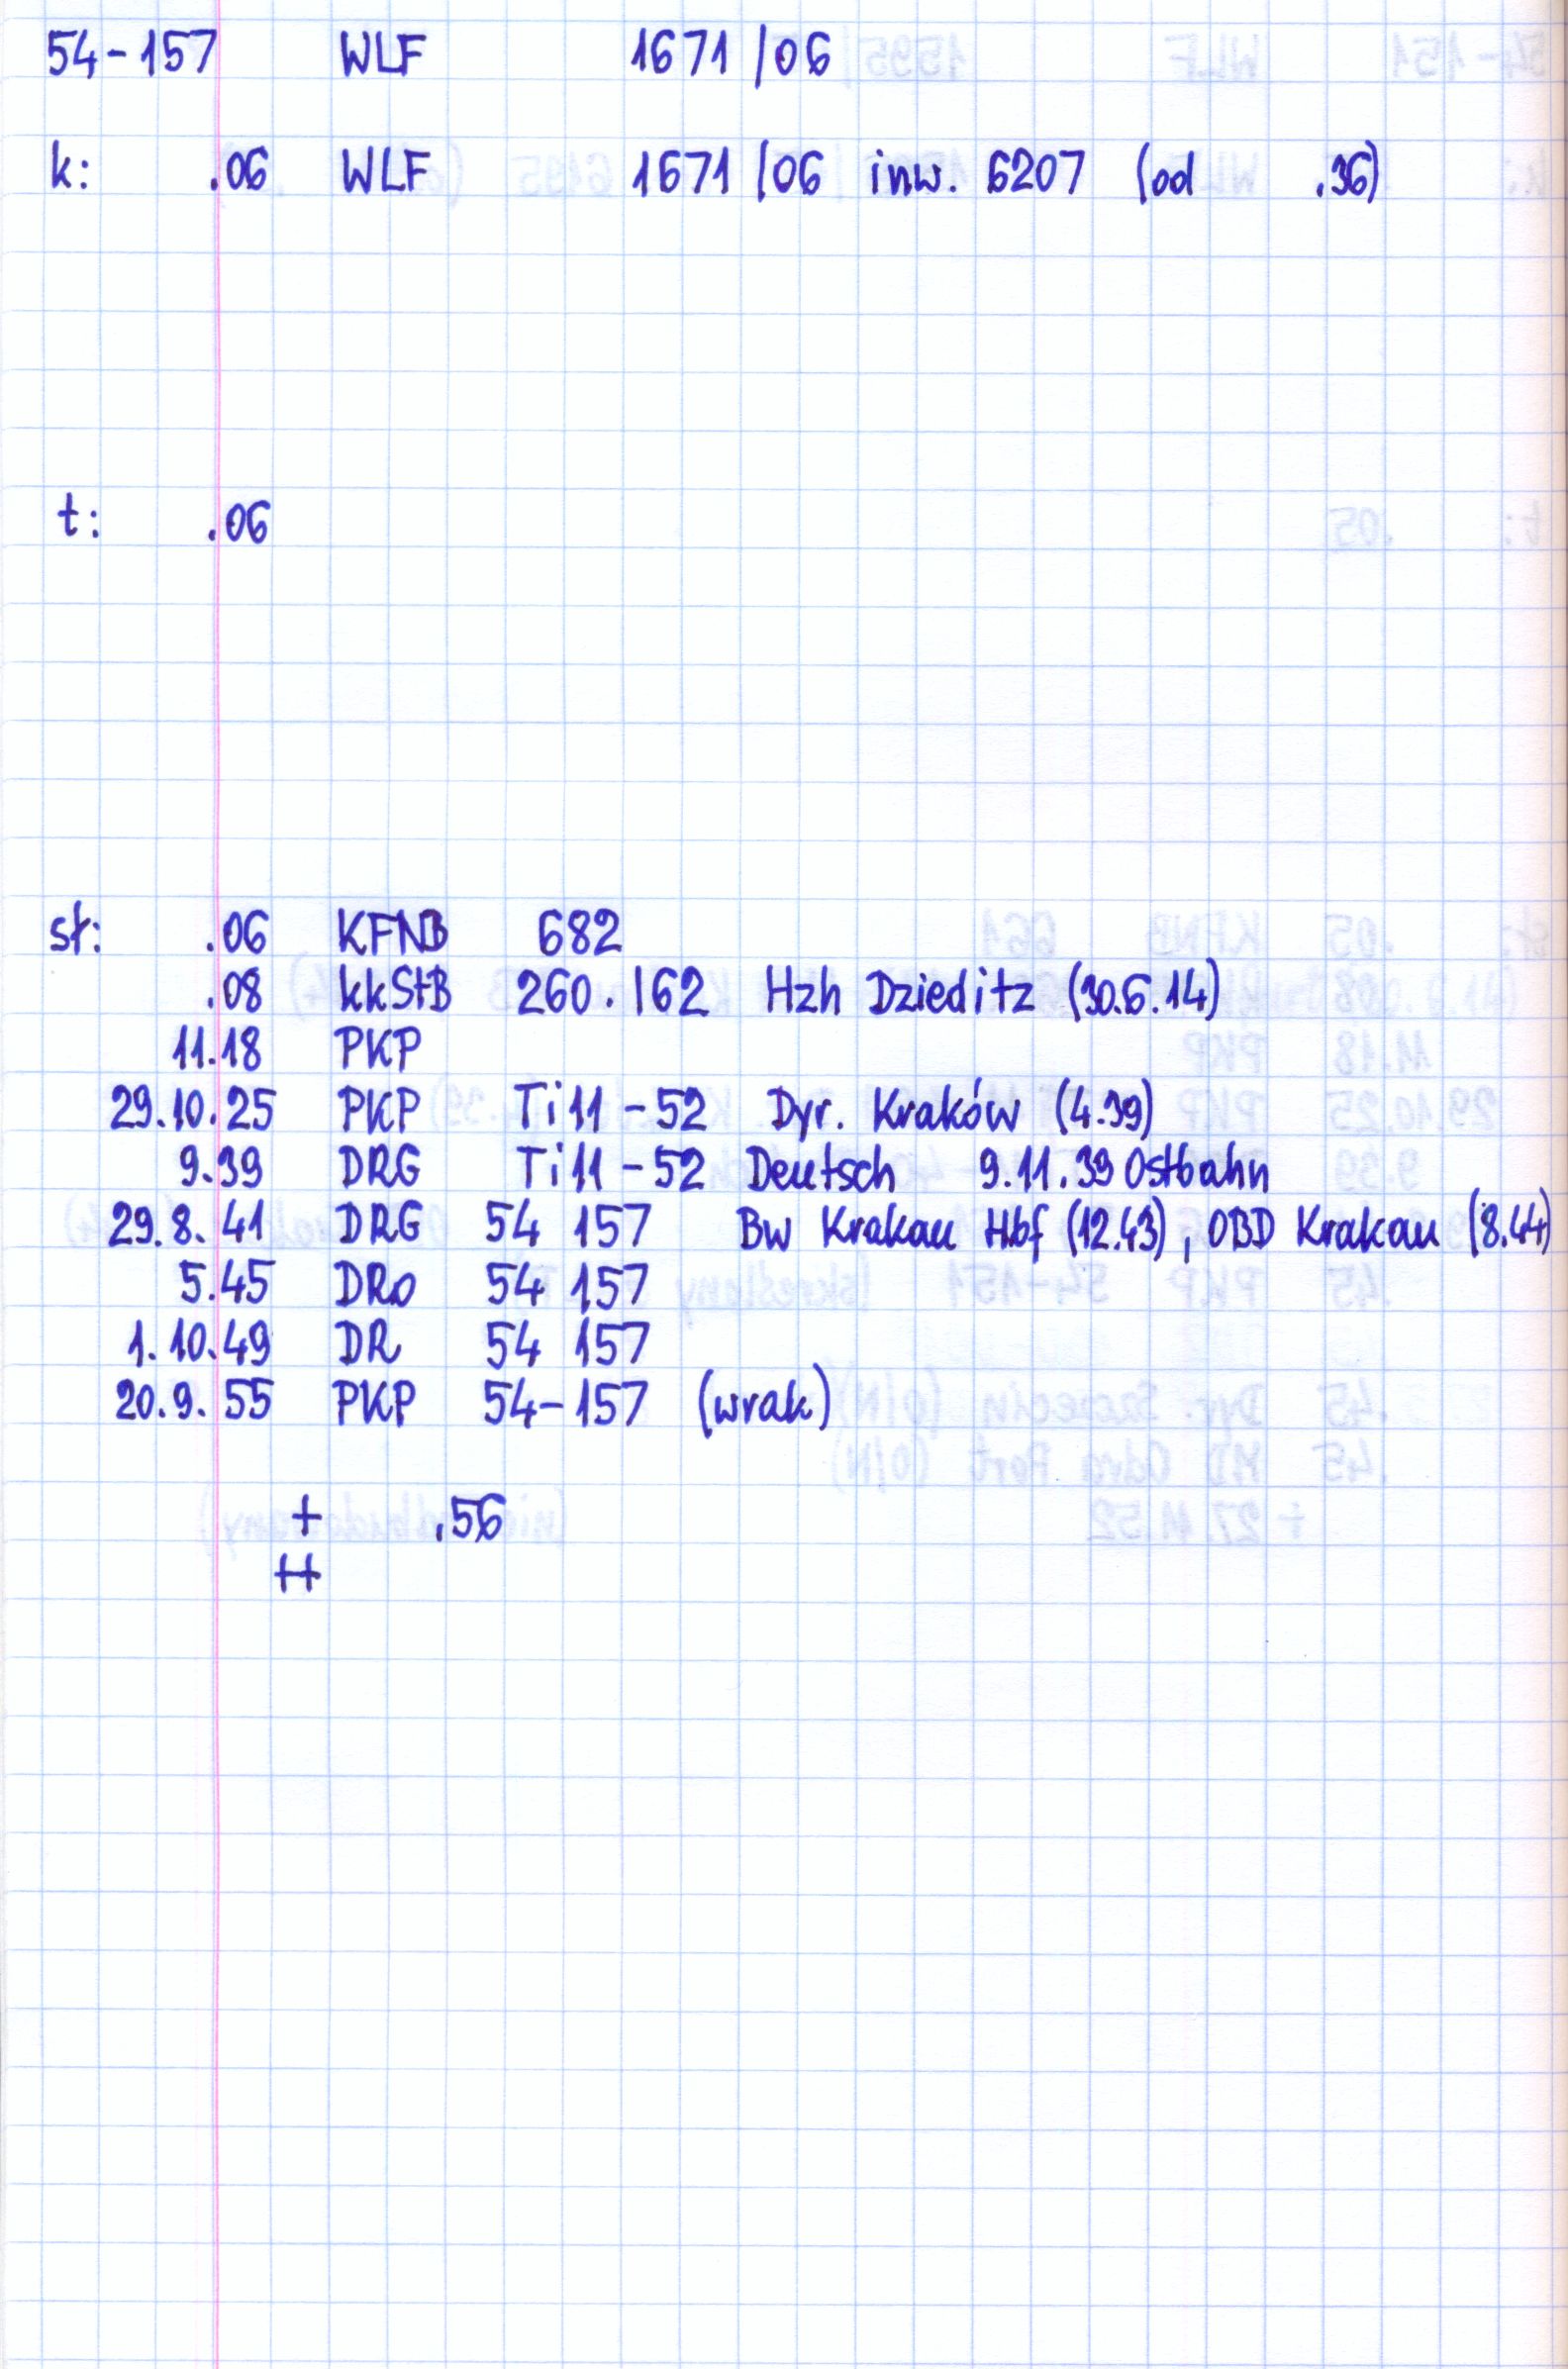 54-157 WLF 1671/06
k: .06 WLF 1671/06 inw. 6207 (od .36)
t: .06
sł: .06 KFNB 682
.08 kkStB 260.162 Hzh Dzieditz (30.6.14)
11.18 PKP
29.10.25 PKP Ti11-52 Dyr. Kraków (4.39)
9.39 DRG Ti11-52 Deutsch 9.11.39 Ostbahn
29.8.41 DRG 54 157 Bw Krakau Hbf (12.43), OBD Krakau (8.44)
5.45 DRo 54 157
1.10.49 DR 54 157
20.9.55 PKP 54-157 (wrak)
+ .56
++